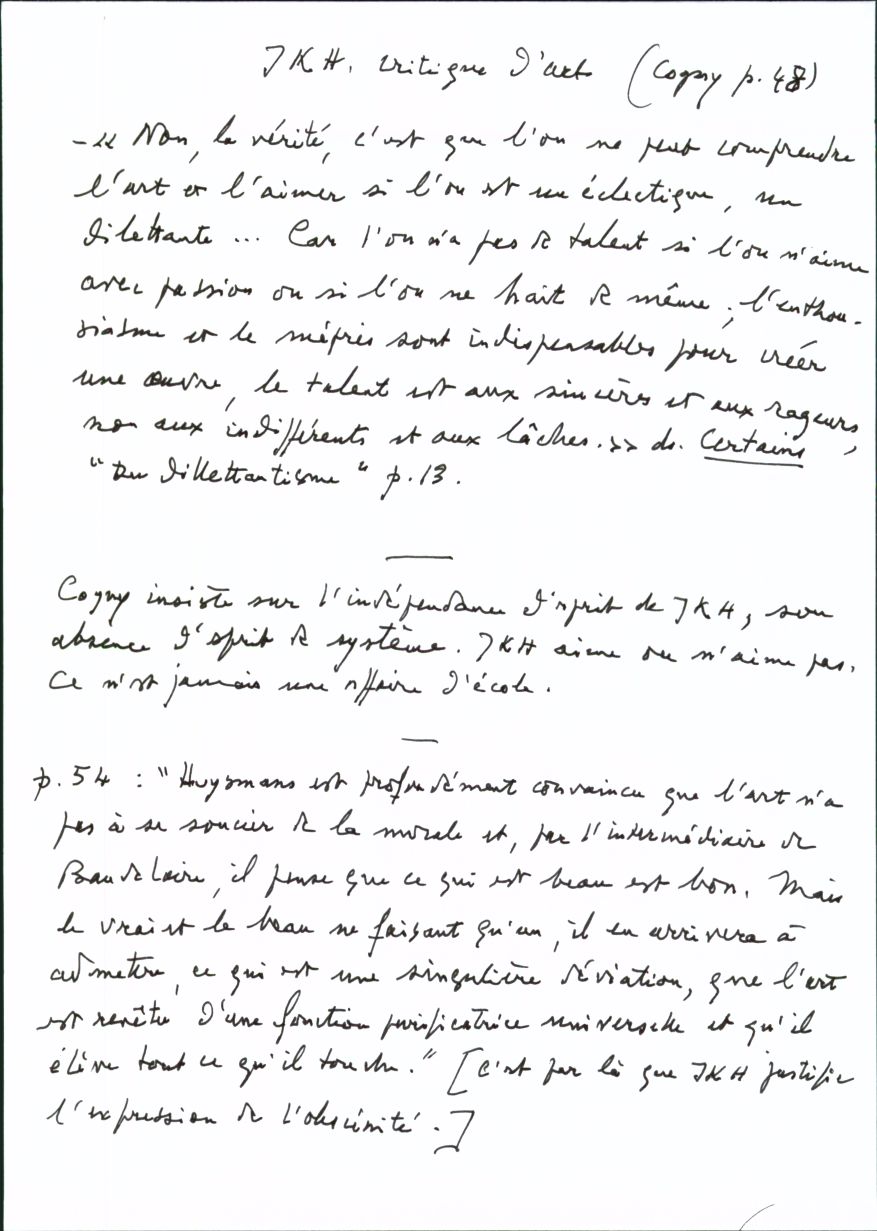 JKH, critique d'art (Cogny p. 48)
- « Non, la vérité, c'est que l'on ne peut comprendre
l'art et l'aimer si l'on est un éclectique, un
dilettante ... Car l'on n'a pas de talent si l'on n'aime
avec passion ou si l'on ne hait de même ; l'enthou-
siasme et le mépris sont indispensables pour créér
une œuvre, le talent est aux sincères et aux rageurs,
non aux indifférents et aux lâches. » ds. Certains
"Du dillettantisme" p. 13.
Cogny insiste sur l'indépendance d'esprit de JKH, son
absence d'esprit de système. JKH aime ou n'aime pas.
Ce n'est jamais une affaire d'école.
p. 54 : "Huysmans est profondément convaincu que l'art n'a
pas à se soucier de la morale et, par l'intermédiaire de
Baudelaire, il pense que ce qui est beau est bon. Mais
le vrai et le beau ne faisant qu'un, il en arrivera à
admettre, ce qui est une singulière déviation, que l'art
est revêtu d'une fonction purificatrice universelle et qu'il
élève tout ce qu'il touche." [C'est par là que JKH justifie
l'expression de l'obscénité.]